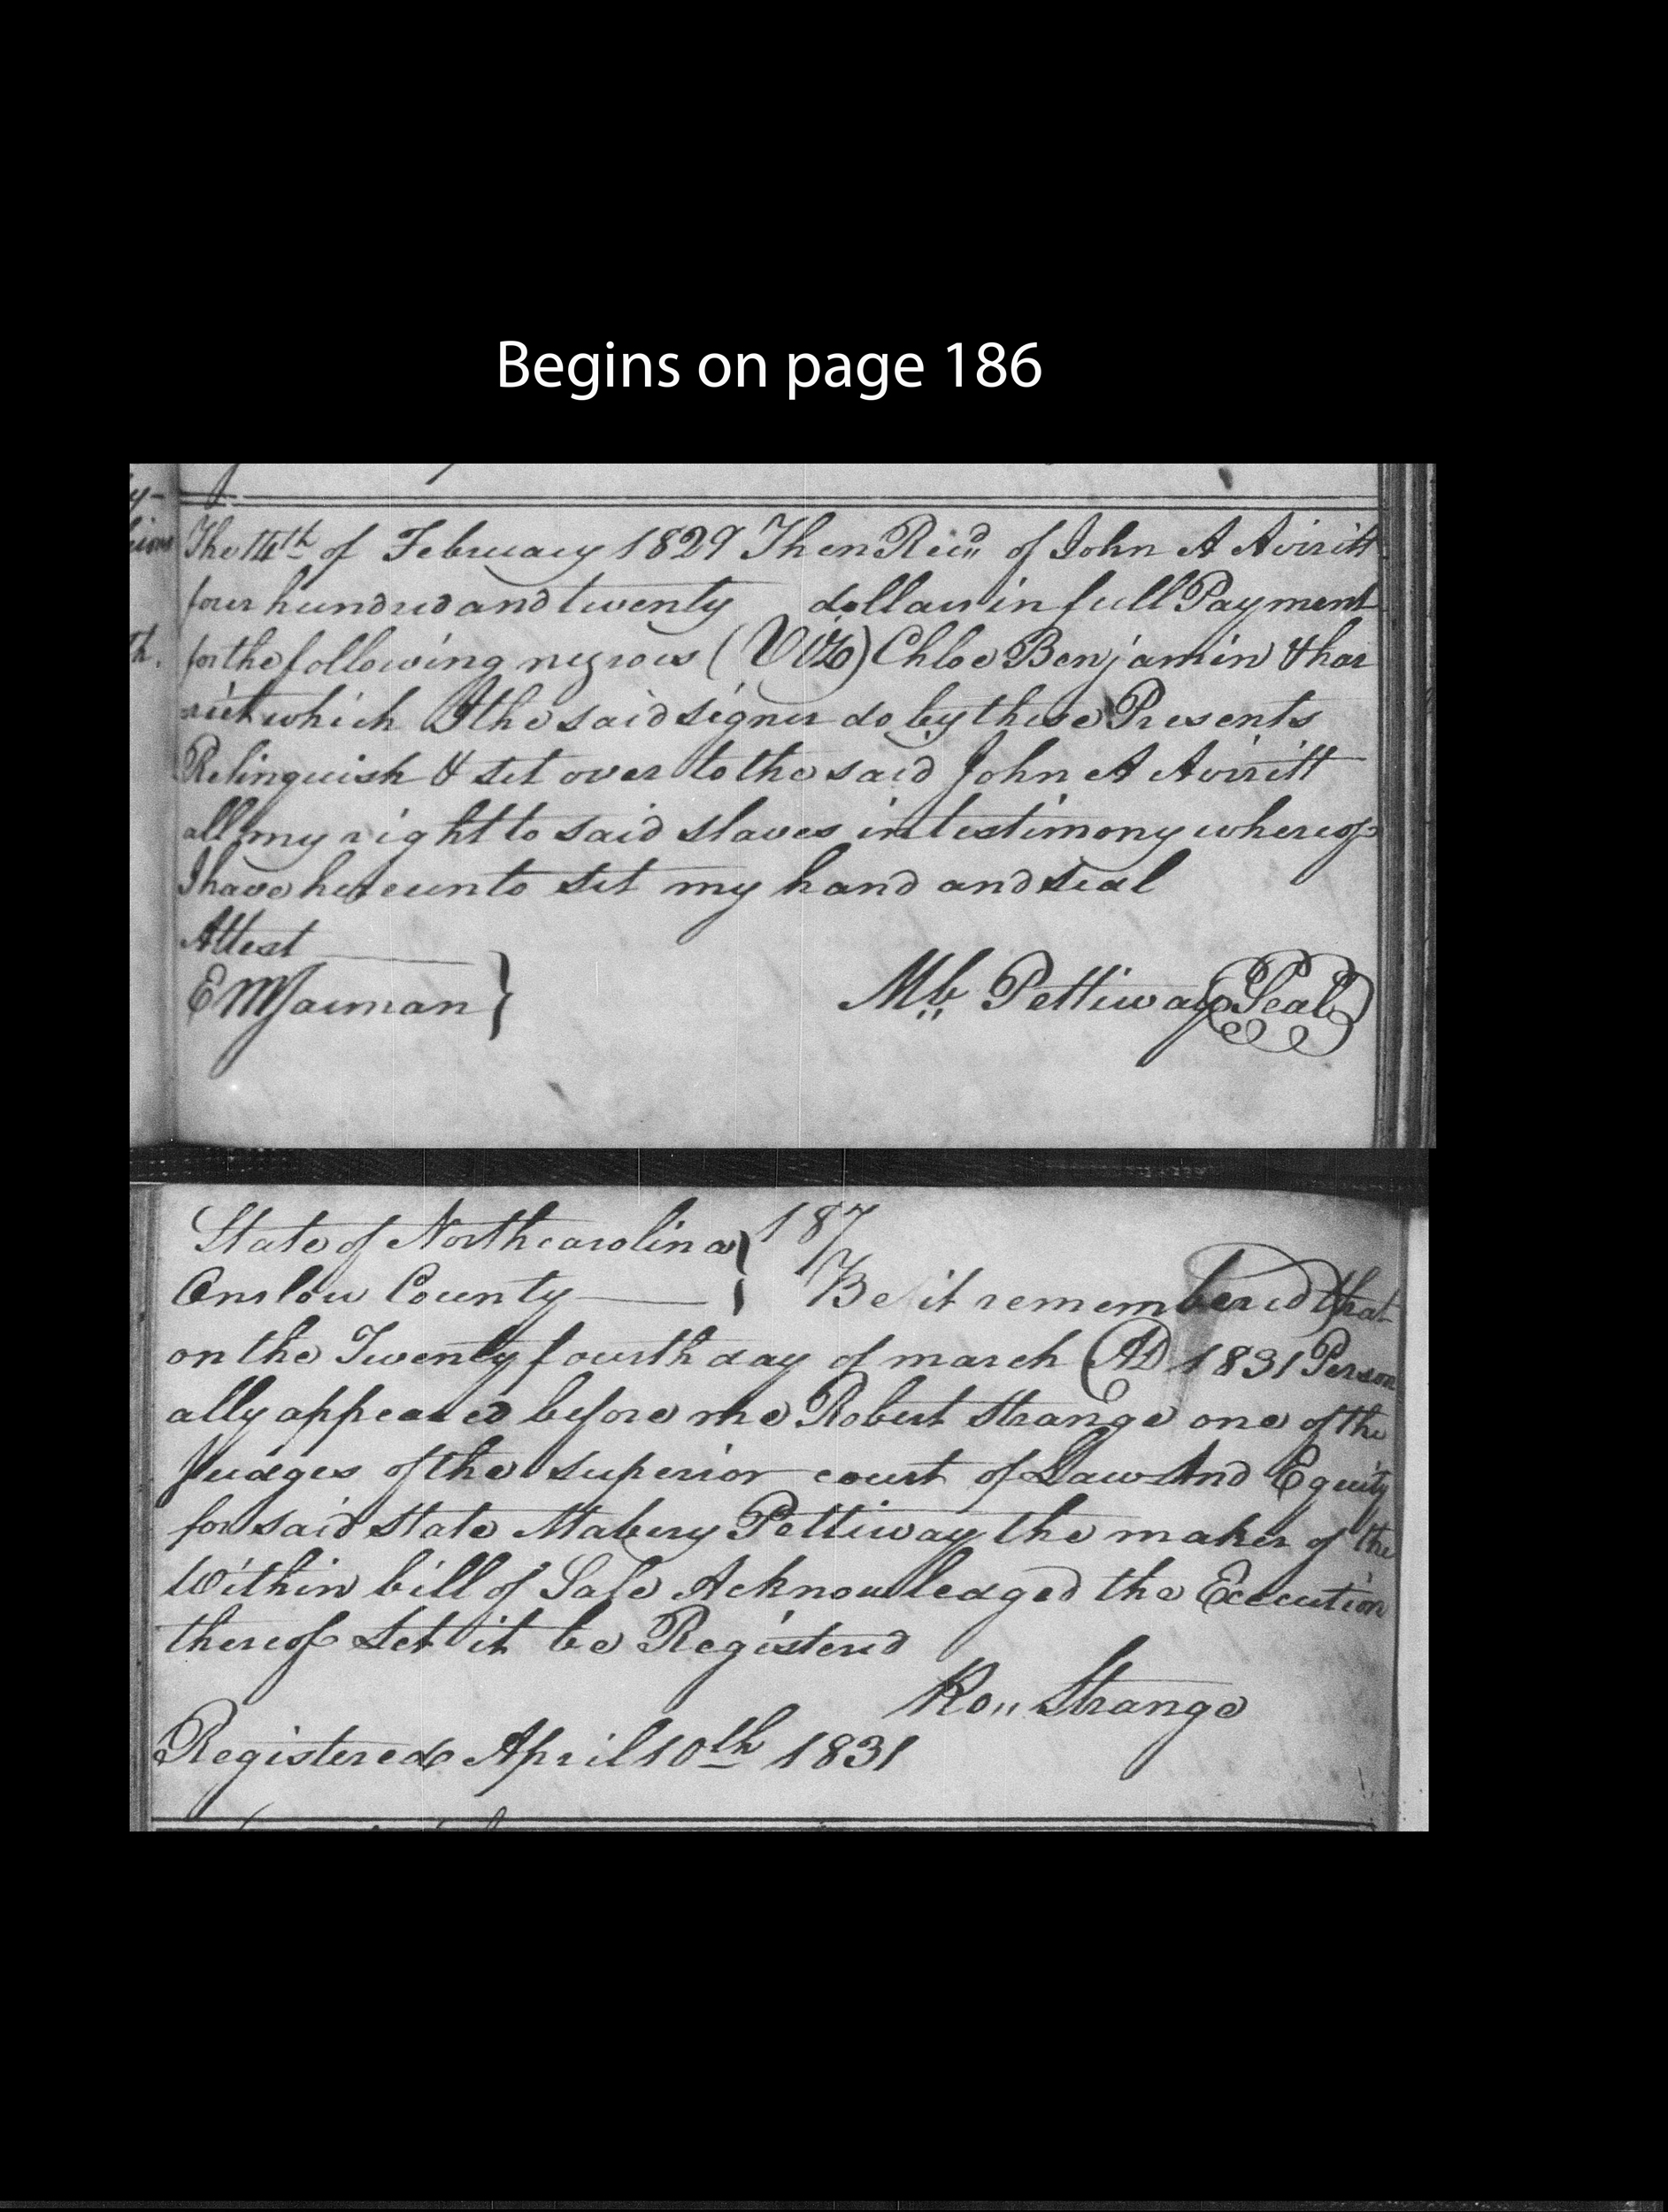 Begins on page 186
The 14th of February 1829 Then Recd of John A Aviritt
four hundred and twenty dollars in full Payment
for the following negroes (Viz) Chloe Benjamin & har
riet which I the said signer do by these Presents
Relinquish & set over to the said John A Aviritt
all my right to said slaves in testimony whereof
I have hereunto set my hand and seal
Attest
E M Jarman } Mb,, Pettiway Seal
State of Northcarolina } 187
Onslow County } Be it remembered that
on the Twenty fourth day of march AD 1831 Person
ally appeared before me Robert Strange one of the
Judges of the superior court of Law And Equity
for said State Mabery Pettiway the maker of the
Within bill of Sale Acknowledged the Execution
thereof Let it be Registered
Ro,, Strange
Registered April 10th 1831